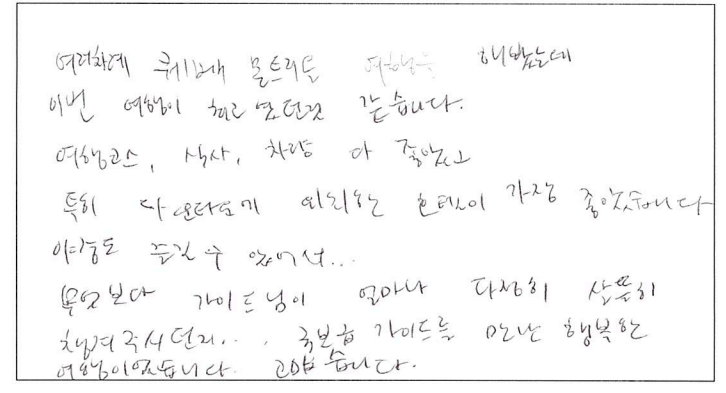 여러차례 퀘백 몬트리올 여행을 해봤는데
이번 여행이 최고 였던것 같습니다.
여행코스, 식사, 차량 다 좋았고
특히 다운타운에 위치한 호텔이 가장 좋았습니다
야경도 즐길 수 있어서...
무엇보다 가이드님이 얼마나 다정히 살뜰히
챙겨주시던지... 국보급 가이드를 만난 행복한
여행이었습니다. 고맙습니다.